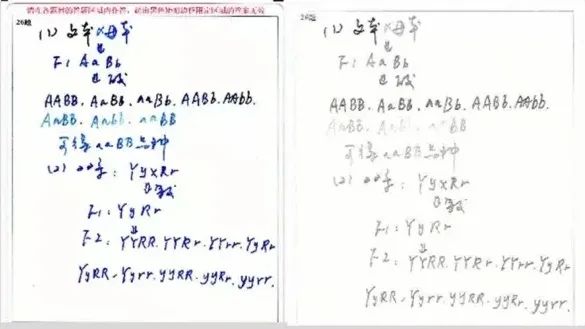 请在各题目的答题区域内作答，超出黑色矩形边框限定区域的答案无效
26题
(1) 父本 × 母本
↓
F1 AaBb
↓
AABB. AaBb. aaBb. AABb. AAbb.
AaBB. Aabb. aaBB
可得 aaBB 品种
(2) 亲本: Yy×Rr
↓
F1: YyRr
↓
F2: YYRR. YYRr. YYrr. YyRr
YyRR. Yyrr. yyRR. yyRr. yyrr.
(1) 父本 × 母本
↓
F1 AaBb
↓
AABB. AaBb. aaBb. AABb. AAbb.
AaBB. Aabb. aaBB
可得 aaBB 品种
(2) : Yy×Rr
↓
F1: YyRr
↓
F2: YYRR. YYRr. YYrr. YyRr
YyRR. Yyrr. yyRR. yyRr. yyrr.